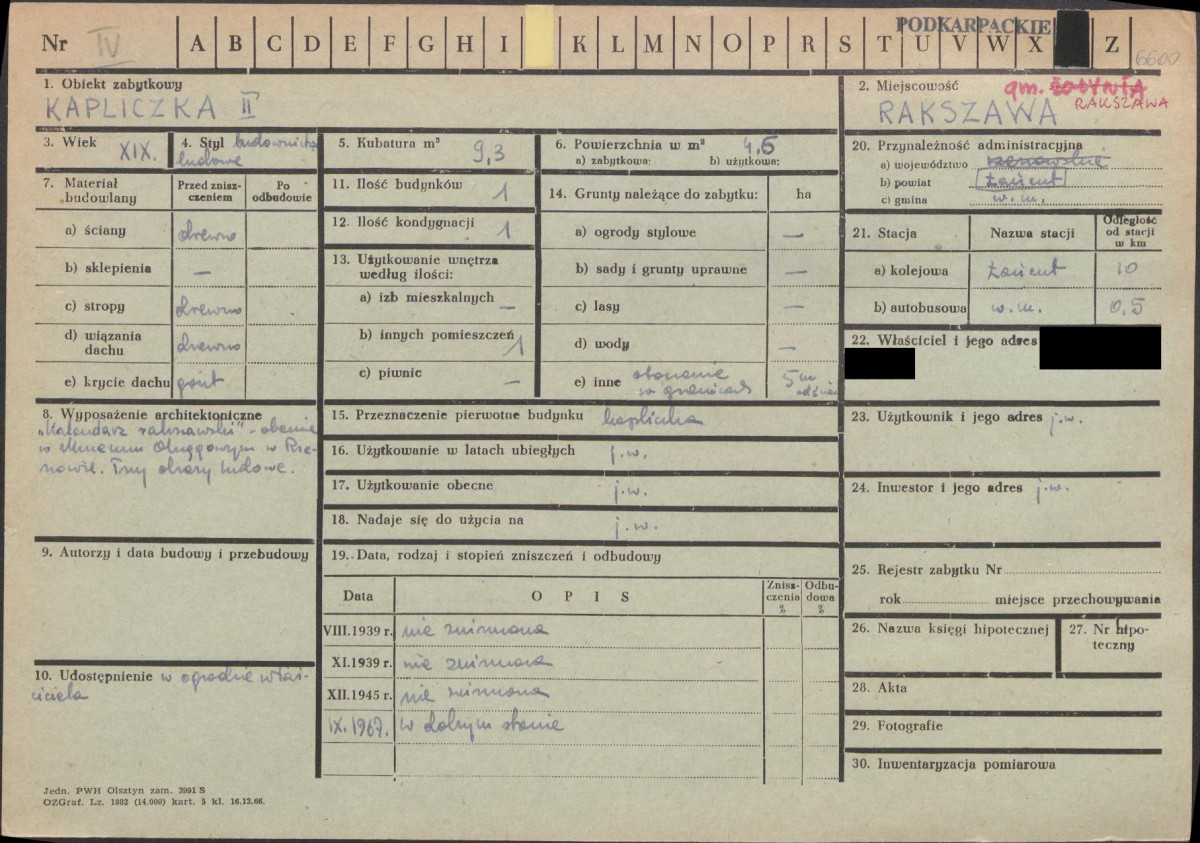 PODKARPACKIE
Nr IV A B C D E F G H I K L M N O P R S T U V W X Z 6600
1. Obiekt zabytkowy
KAPLICZKA II
2. Miejscowość gm. ŻOŁYNIA
RAKSZAWA RAKSZAWA
3. Wiek XIX.
4. Styl budownictwo
ludowe
5. Kubatura m³ 9,3
6. Powierzchnia w m² 4,6
a) zabytkowa: b) użytkowa:
20. Przynależność administracyjna
a) województwo rzeszowskie
b) powiat Łańcut
c) gmina w.m.
7. Materiał budowlany
Przed zniszczeniem
Po odbudowie
a) ściany drewno
b) sklepienia —
c) stropy drewno
d) wiązania dachu drewno
e) krycie dachu gont
11. Ilość budynków 1
12. Ilość kondygnacji 1
13. Użytkowanie wnętrza
według ilości:
a) izb mieszkalnych —
b) innych pomieszczeń 1
c) piwnic —
14. Grunty należące do zabytku: ha
a) ogrody stylowe —
b) sady i grunty uprawne —
c) lasy —
d) wody —
e) inne otoczenie 5 m
w granicach
21. Stacja Nazwa stacji Odległość od stacji w km
a) kolejowa Łańcut 10
b) autobusowa w.m. 0,5
22. Właściciel i jego adres
8. Wyposażenie architektoniczne
„Kalendarz rakszawski" - obecnie
w Muzeum Okręgowym w Rze-
szowie. Trzy obrazy ludowe.
15. Przeznaczenie pierwotne budynku kapliczka
16. Użytkowanie w latach ubiegłych j.w.
17. Użytkowanie obecne j.w.
18. Nadaje się do użycia na j.w.
23. Użytkownik i jego adres j.w.
24. Inwestor i jego adres j.w.
9. Autorzy i data budowy i przebudowy
19. Data, rodzaj i stopień zniszczeń i odbudowy
Data OPIS Zniszczenia % Odbudowa %
VIII.1939 r. nie zmieniona
XI.1939 r. nie zmieniona
XII.1945 r. nie zmieniona
IX.1967. w dobrym stanie
25. Rejestr zabytku Nr
rok miejsce przechowywania
26. Nazwa księgi hipotecznej
27. Nr hipo-
teczny
10. Udostępnienie w ogrodzie właś-
ciciela
28. Akta
29. Fotografie
30. Inwentaryzacja pomiarowa
Jedn. PWH Olsztyn zam. 3991 S
OZGraf. Lz. 1882 (14.000) kart. 5 kl. 16.12.66.